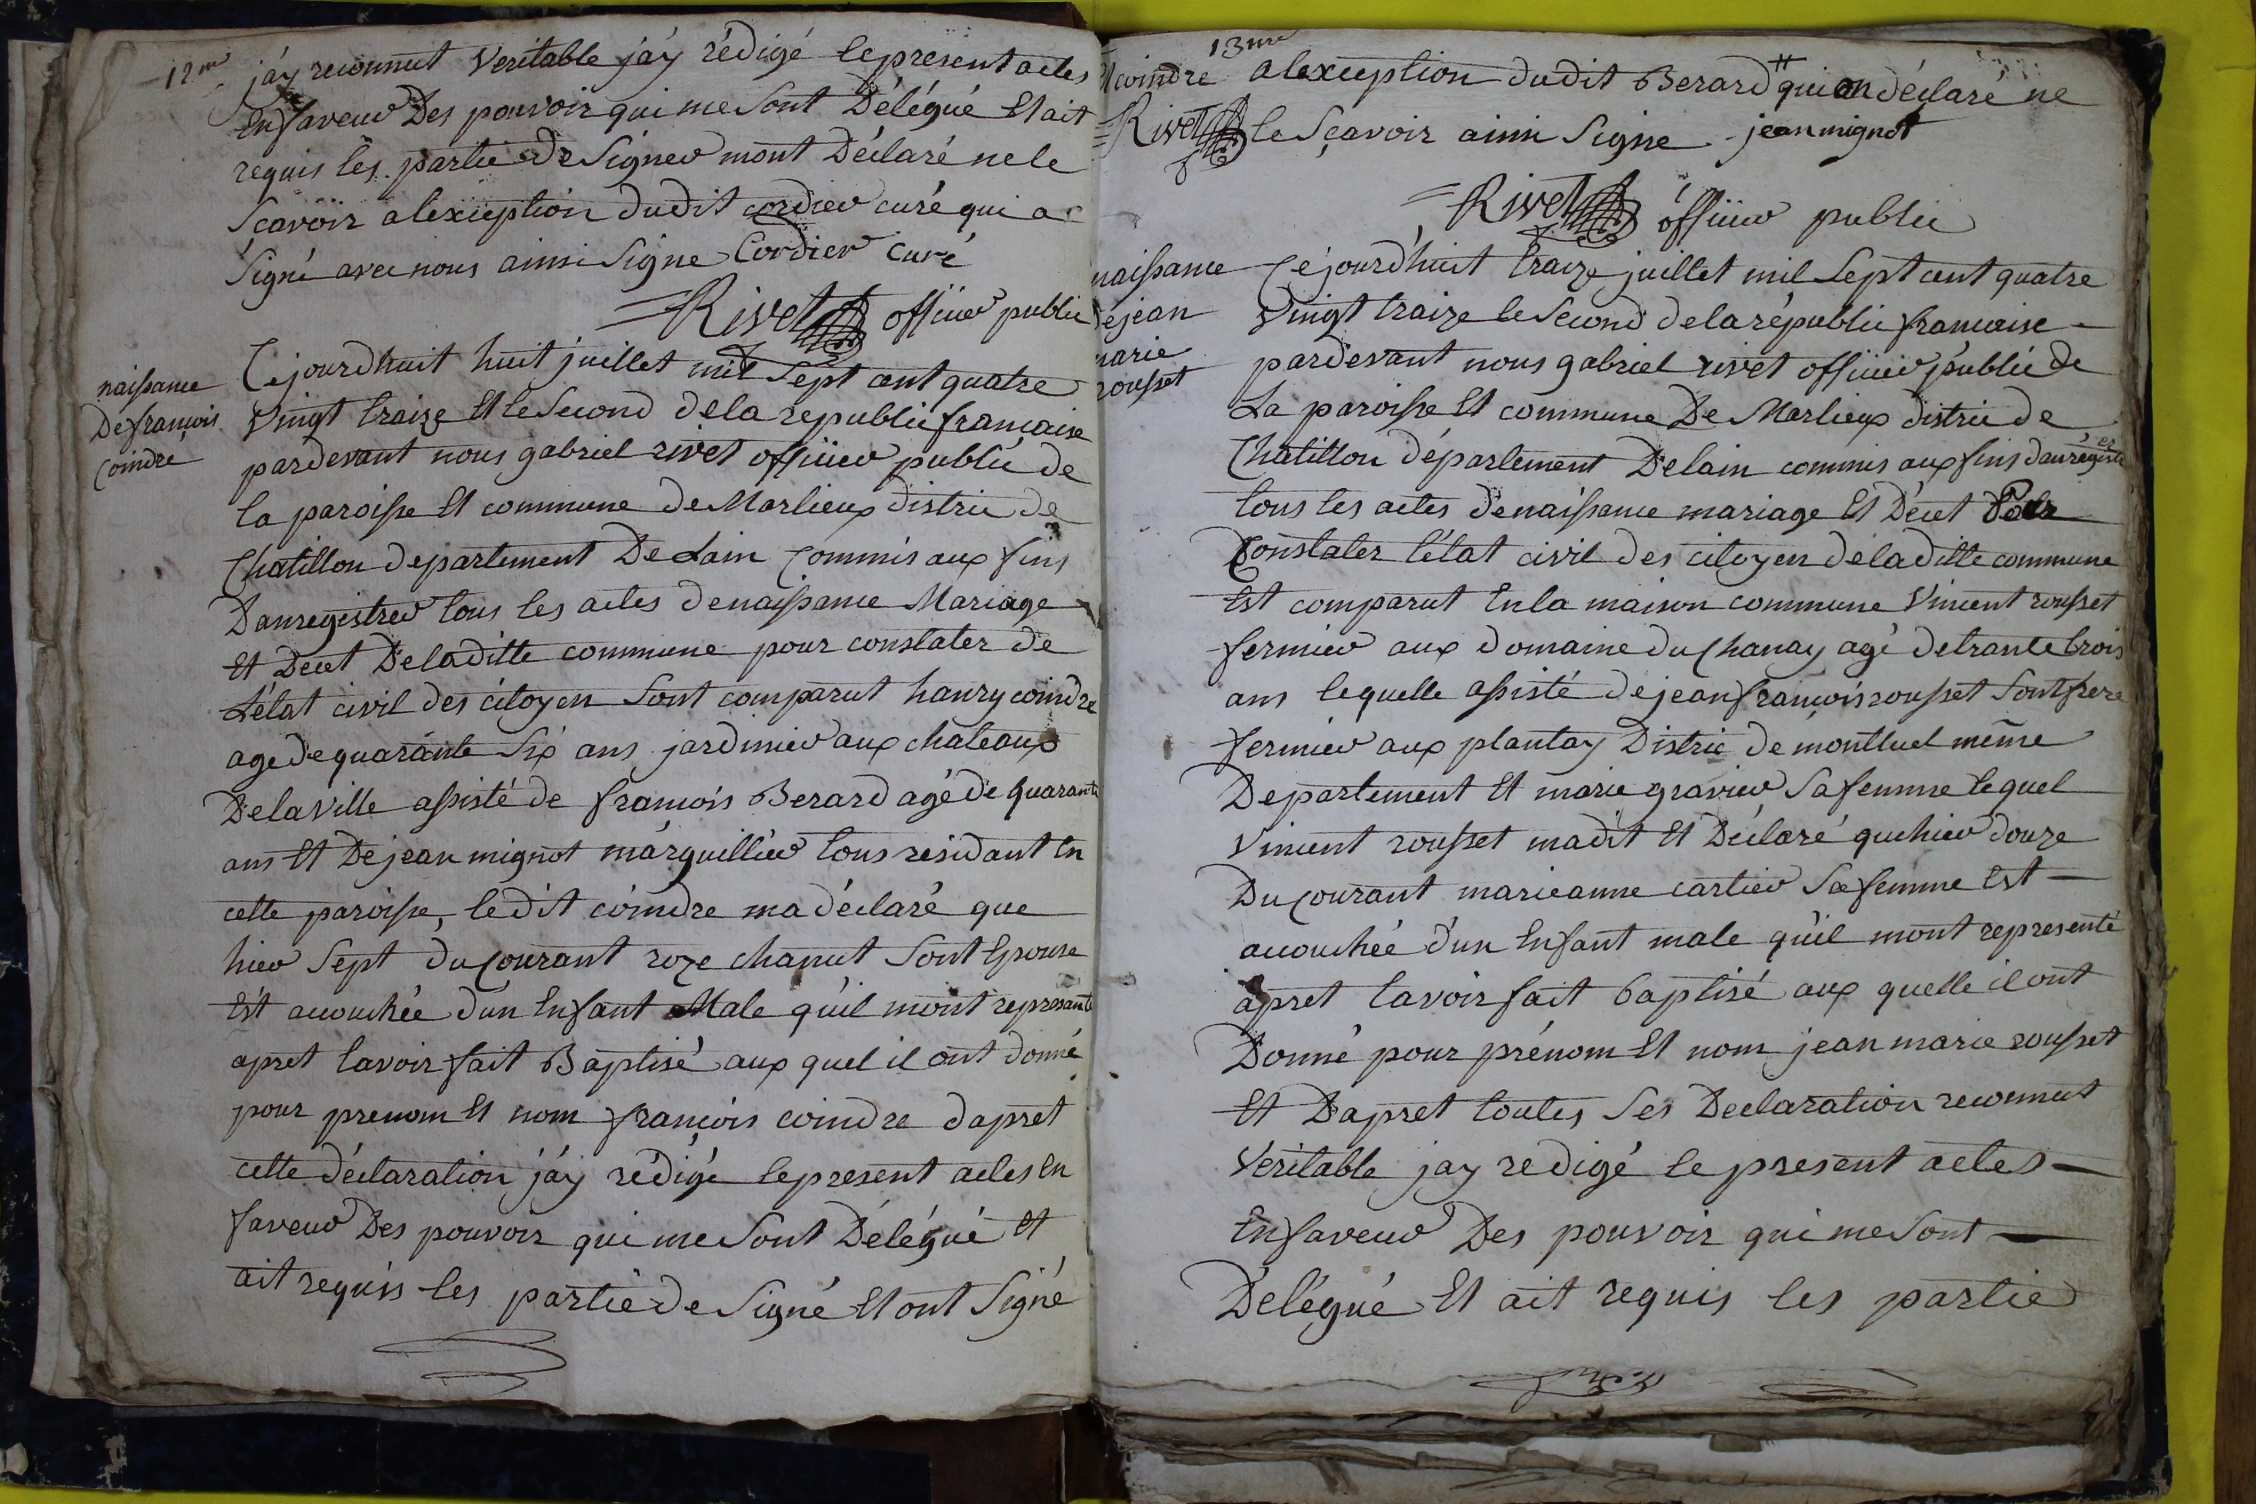 12me
j'ay reconnut Veritable j'ay rédigé le present actes
En faveur Des pouvoir qui me sont Délégué Et ait
requis les partie De Signer mont Déclaré ne le
Sçavoir a lexception dudit cordier curé qui a
Signé avec nous ainsi Signe Cordier Curé
Rivet officier public
naissance
De françois
Coindre
Cejourdhuit huit juillet mil Sept cent quatre
Vingt traize Et le Second de la republic française
pardevant nous gabriel rivet officier public de
la paroisse Et commune de Marlieux distric de
Chatillon departement De Lain Commis aux fins
Danregistrer tous les actes de naissance Mariage
Et Decet De laditte commune pour constater de
L'état civil des citoyen Sont comparut hanry coindre
age de quarante Six ans jardinier aux chateaux
De la Ville assisté de françois Berard agé de quarante
ans Et De jean mignot marguillier tous residant En
cette paroisse, ledit coindre ma déclaré que
hier Sept du Courant roze chanut Sont Epouse
Est accouchée d'un Enfant Male qu'il mont represanté
apret lavoir fait Baptisé aux quel il ont donné
pour prenom Et nom françois coindre dapret
cette déclaration j'ay rédigé le present actes En
faveur Des pouvoir qui me sont Délégué Et
ait requis les partie de Signé Et ont Signé
13me
Et coindre
Rivet
a lexception dudit Berard # qui on déclaré ne
le Sçavoir ainsi Signe jean mignot
Rivet officier public
naissance
de jean
marie
rousset
Cejourd'huit traize juillet mil Sept cent quatre
Vingt traize le Second de la républic francaise
pardevant nous gabriel rivet officier public de
La paroisse Et commune De Marlieux distric de
Chatillon département De lain commis aux fins danregistrer
tous les actes de naissance mariage Et Décet Pour
Constater l'état civil des citoyen de laditte commune
Est comparut En la maison commune Vincent rousset
fermier aux domaine du Chanay agé de trante trois
ans lequelle assisté de jean françois rousset Sont frere
fermier aux plantay Distric de montluel même
Departement Et marie gravier Sa femme lequel
Vincent rousset madit Et Déclaré que hier douze
Du Courant marie anne cartier Sa femme Est
accouchée d'un Enfant male qu'il mont representé
apret lavoir fait baptisé aux quelle il ont
Donné pour prénom Et nom jean marie rousset
Et Dapret toutes Ses Declaration reconnut
Veritable jay redigé le present actes
En faveur Des pouvoir qui me sont
Délégué Et ait requis les partie